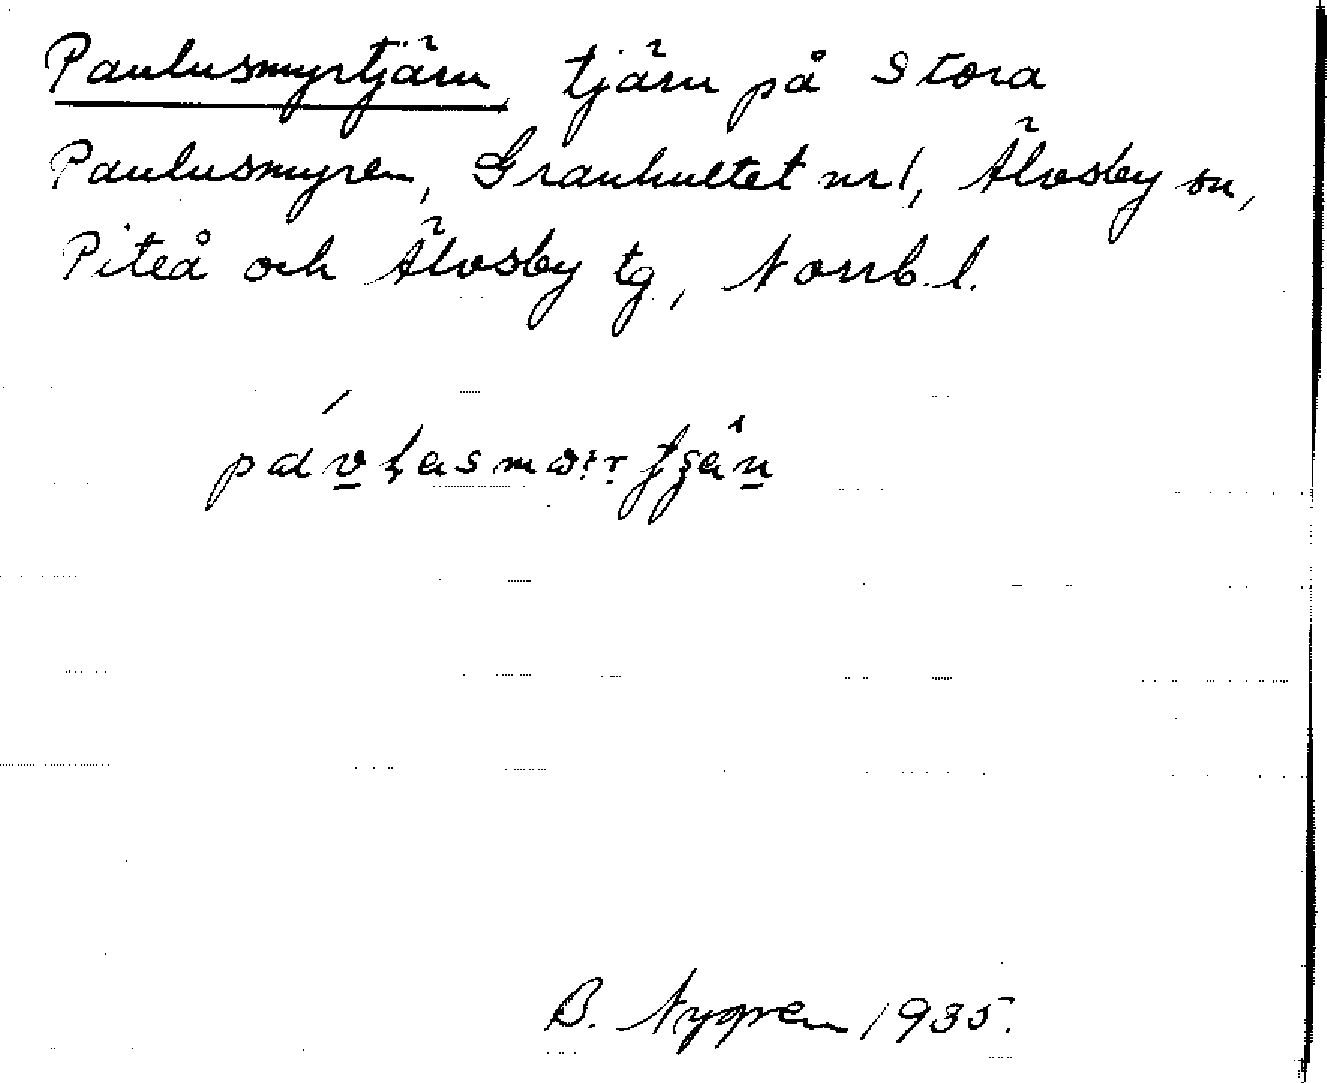 Paulusmyrtjärn, tjärn på Stora
Paulusmyren, Granhultet nr 1, Älvsby sn,
Piteå och Älvsby tg., Norrb. l.
B. Nygren 1935.